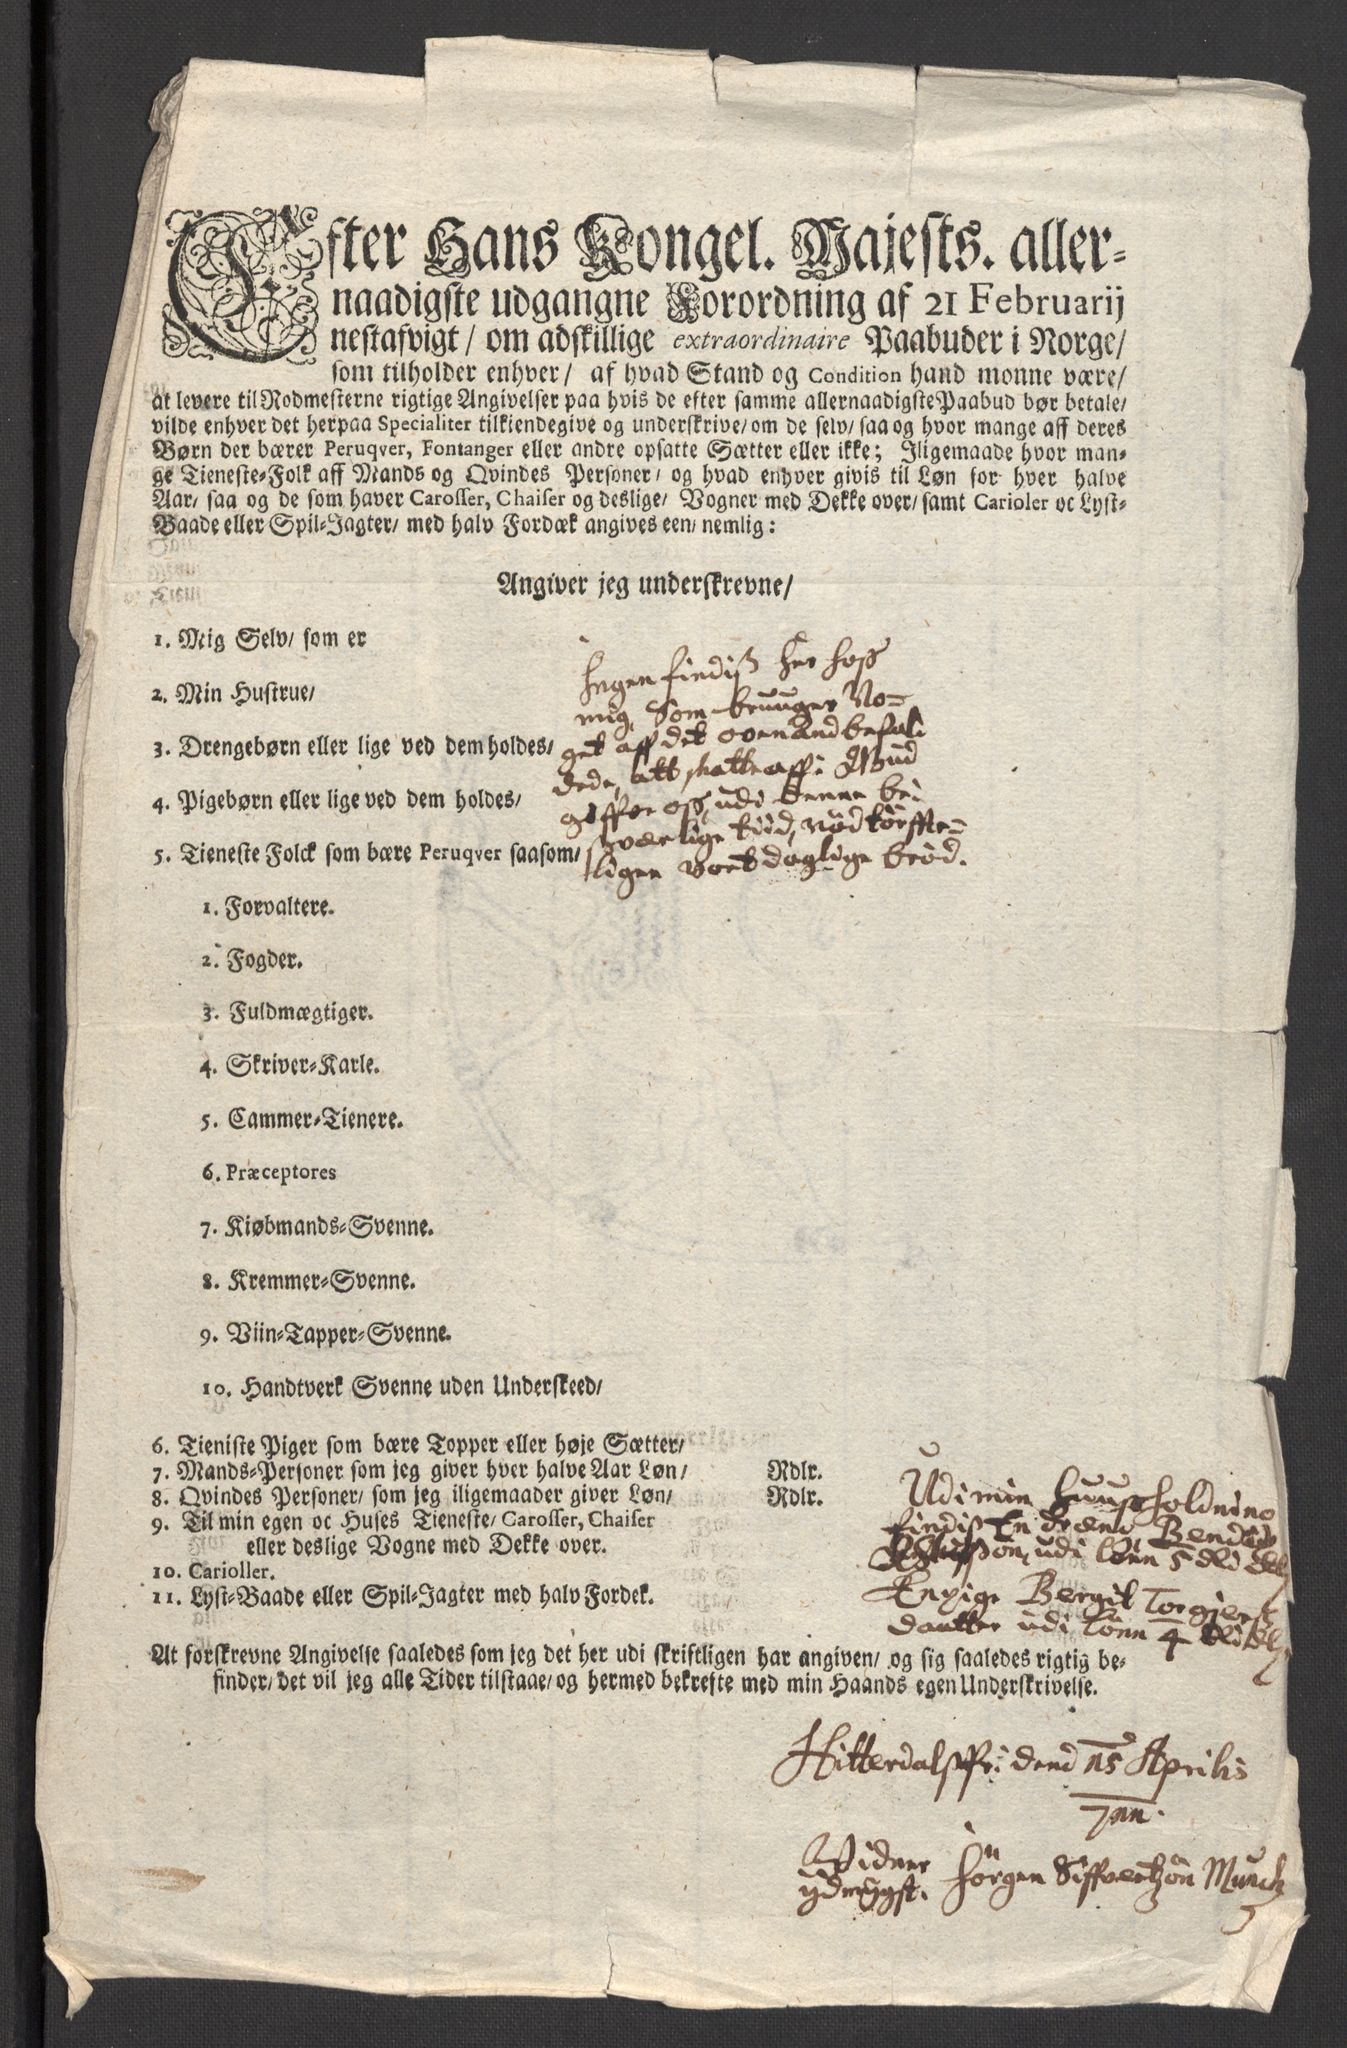 Efter Hans Kongel. Majests. aller-
naadigste udgangne Forordning af 21 Februarij
nestafvigt / om adskillige extraordinaire Paabuder i Norge /
som tilholder enhver / af hvad Stand og Condition hand monne være /
at levere til Rodmesterne rigtige Angivelser paa hvis de efter samme allernaadigste Paabud bør betale /
vilde enhver det herpaa Specialiter tilkiendegive og underskrive / om de selv / saa og hvor mange aff deres
Børn der bærer Peruqver, Fontanger eller andre opsatte Sætter eller ikke; Iligemaade hvor man-
ge Tieneste-Folk aff Mands og Qvindes Personer / og hvad enhver givis til Løn for hver halve
Aar / saa og de som haver Carosser, Chaiser og deslige / Vogner med Dekke over / samt Carioler oc Lyst-
Baade eller Spil-Jagter / med halv Fordæk angives een / nemlig:
Angiver jeg underskrevne /
1. Mig Selv / som er
Ingen findiß her hoß
2. Min Hustrue /
mig, Som bruuger No-
3. Drengebørn eller lige ved dem holdes /
get aff det ovenandbefali
dede, att skatte aff: Gud
4. Pigebørn eller lige ved dem holdes /
giffve oß udi denne be
5. Tieneste Folck som bære Peruqver saasom /
sværlige tiid, nødtørffte-
ligen vort daglige brød.
1. Forvaltere.
2. Fogder.
3. Fuldmægtiger.
4. Skriver-Karle.
5. Cammer-Tienere.
6. Præceptores
7. Kiøbmands-Svenne.
8. Kremmer-Svenne.
9. Viin-Tapper-Svenne.
10. Handtverk Svenne uden Underskeed /
6. Tieniste Piger som bære Topper eller høje Sætter /
7. Mands-Personer som jeg giver hver halve Aar Løn / Rdlr.
8. Qvindes Personer / som jeg iligemaader giver Løn / Rdlr.
9. Til min egen oc Huses Tieneste / Carosser, Chaiser
eller deslige Vogne med Dekke over.
10. Carioller.
11. Lyst-Baade eller Spil-Jagter med halv Fordek.
Udi min huußholdning
findiß En dreng
udi lønn 5
En pige Bergit Torgierß
daatter udi lønn 4
At forskrevne Angivelse saaledes som jeg det her udi skriftligen har angiven / og sig saaledes rigtig be-
finder / det vil jeg alle Tider tilstaae / og hermed bekrefte med min Haands egen Underskrivelse.
Hitterdals dend 15 Aprilis
1711.
Vidner
ydmygst. Jørgen Siffvertzøn Munck